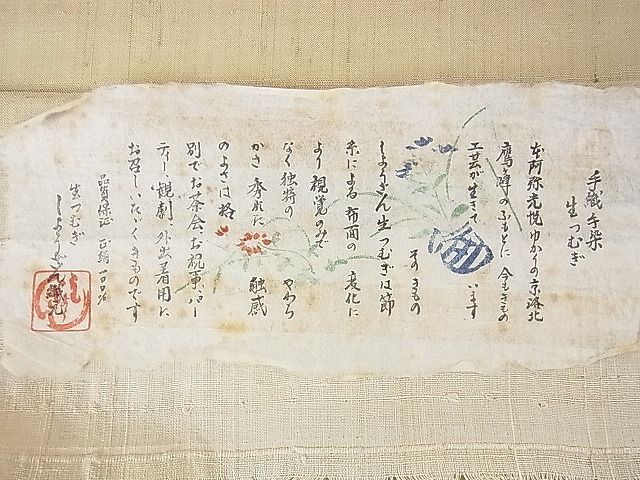 手織手染
生つむぎ
本阿弥光悦ゆかりの京洛北
鷹峰のふもとに 今もきもの
工芸が生きて います
そのきもの
しょうざん生つむぎは節
糸による布面の 変化に
より視覚のみで
なく独特の やわら
かさ 秀れた 触感
のよさは格
別でお茶会、お祝事、パー
ティー、観劇、外出着用に
お召しいたゞくきものです
品質保証 正絹一〇〇%
生つむぎ
しょうざん